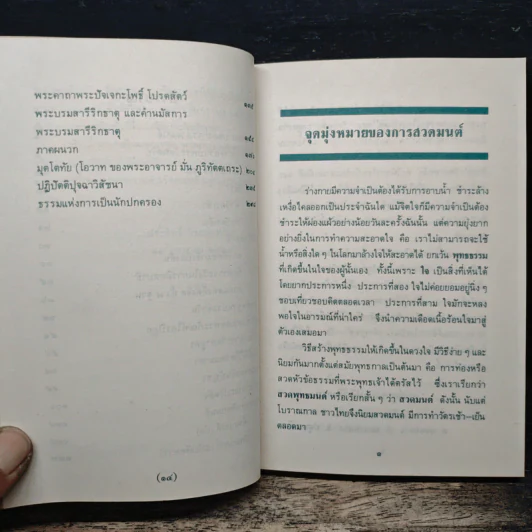 พระคาถาพระปัจเจกะโพธิ์ โปรดสัตว์
๑๓๕
พระบรมสารีริกธาตุ และคำนมัสการ
พระบรมสารีริกธาตุ
ภาคผนวก
มุตโตทัย (โอวาท ของพระอาจารย์ มั่น ภูริทัตตเถระ)
ปฏิปัตติปุจฉาวิสัชนา
ธรรมแห่งการเป็นนักปกครอง
(๑๔)
จุดมุ่งหมายของการสวดมนต์
ร่างกายมีความจำเป็นต้องได้รับการอาบน้ำ ชำระล้าง
เหงื่อไคลออกเป็นประจำฉันใด แม้จิตใจก็มีความจำเป็นต้อง
ชำระให้ผ่องแผ้วอย่างน้อยวันละครั้งฉันนั้น แต่ความยุ่งยาก
อย่างยิ่งในการทำความสะอาดใจ คือ เราไม่สามารถจะใช้
น้ำหรือสิ่งใด ๆ ในโลกมาล้างใจให้สะอาดได้ ยกเว้น พุทธธรรม
ที่เกิดขึ้นในใจของผู้นั้นเอง ทั้งนี้เพราะ ใจ เป็นสิ่งที่เห็นได้
โดยยากประการหนึ่ง ประการที่สอง ใจไม่ค่อยยอมอยู่นิ่ง ๆ
ชอบเที่ยวชอบคิดตลอดเวลา ประการที่สาม ใจมักจะหลง
พอใจในอารมณ์ที่น่าใคร่ จึงนำความเดือดเนื้อร้อนใจมาสู่
ตัวเองเสมอมา
วิธีสร้างพุทธธรรมให้เกิดขึ้นในดวงใจ มีวิธีง่าย ๆ และ
นิยมกันมาตั้งแต่สมัยพุทธกาลเป็นต้นมา คือ การท่องหรือ
สวดหัวข้อธรรมที่พระพุทธเจ้าได้ตรัสไว้ ซึ่งเราเรียกว่า
สวดพุทธมนต์ หรือเรียกสั้น ๆ ว่า สวดมนต์ ดังนั้น นับแต่
โบราณกาล ชาวไทยจึงนิยมสวดมนต์ มีการทำวัตรเช้า–เย็น
ตลอดมา
๑